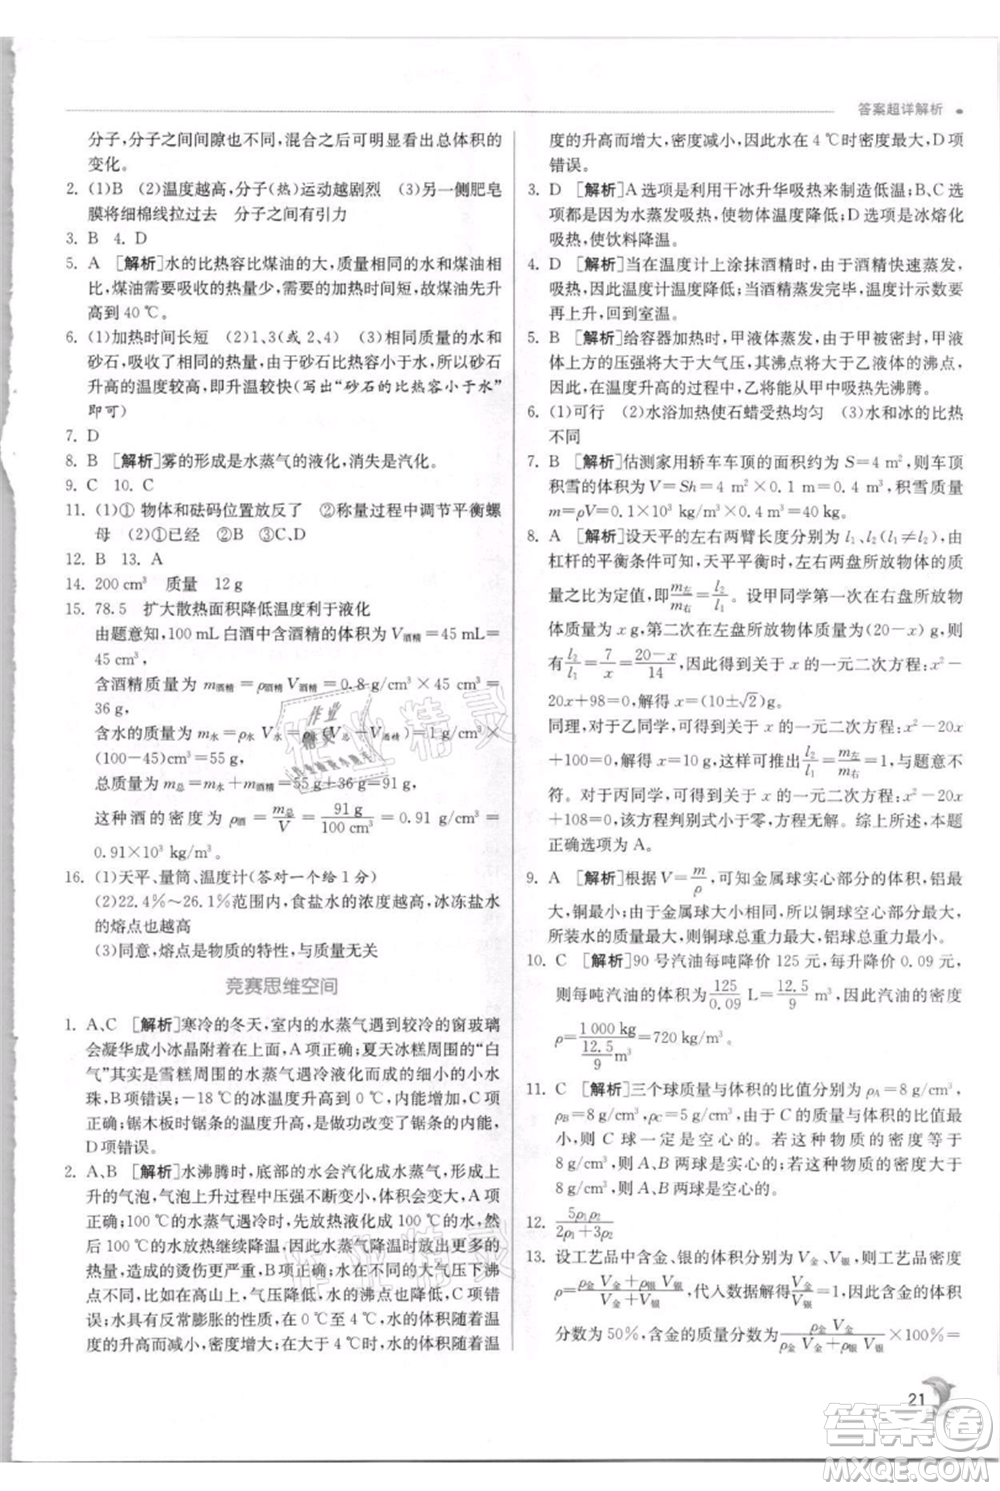 答案超详解析
分子,分子之间间隙也不同,混合之后可明显看出总体积的
变化。
2. (1)B (2)温度越高,分子(热)运动越剧烈 (3)另一侧肥皂
膜将细棉线拉过去 分子之间有引力
3. B 4. D
5. A [解析]水的比热容比煤油的大,质量相同的水和煤油相
比,煤油需要吸收的热量少,加热时间短,故在煤油中先升
高到40 ℃。
6. (1)加热时间长短 (2)1、3(或2、4) (3)相同质量的水和
砂石,吸收了相同的热量,由于砂石比热容小于水,所以砂石
升高的温度较高,即升温较快(写出“砂石的比热容小于水”
即可)
7. D
8. B [解析]雾的形成是水蒸气的液化,消失是汽化。
9. C 10. C
11. (1)① 物体和砝码位置放反了 ②称量过程中调节平衡螺
母 (2)①已经 ②B
12. B 13. A
14. 200 cm³ 质量 12 g
15. 78.5 扩大散热面积降低温度利于液化
由题意知,100 mL白酒中含酒精的体积为V酒精=45 mL=
45 cm³,
含酒精质量为m酒精=ρ酒精V酒精=0.8 g/cm³×45 cm³=
36 g,
含水的质量为m水=ρ水 V水=ρ水(V总-V酒精)=1 g/cm³×
(100-45)cm³=55 g,
总质量为m总=m水+m酒精=55 g+36 g=91 g,
这种酒的密度为ρ酒=m总/V=91 g/100 cm³=0.91 g/cm³=
0.91×10³ kg/m³。
16. (1)天平、量筒、温度计(答对一个给1分)
(2)22.4%~26.1%范围内,食盐水的密度越大,冰冻盐水
的熔点也越大
(3)同意,熔点是物质的特性,与质量无关
竞赛思维空间
1. A、C [解析]寒冷的冬天,室内的水蒸气遇到较冷的窗玻璃
会凝华成小冰晶附着在上面,A项正确;夏天冰糕周围的“白
气”其实是雪糕周围的水蒸气遇冷液化而成的细小的小水
珠,B项错误;-18 ℃的冰温度升高到0 ℃,内能增大,C项
正确;锯木板时锯条的温度升高,是做功改变了锯条的内能,
D项错误。
2. A、B [解析]水沸腾时,底部的水会汽化成水蒸气,形成上
升的气泡,气泡上升过程中压强不断减小,体积会变大,A项
正确;100 ℃的水蒸气遇冷时,先放热液化成100 ℃的水,
100 ℃的水放热继续降温,所以水蒸气降温时放出更多的热
量,造成的烫伤更严重,B项正确;在大气压小于一个标准大
气压下,比如在高山上,水的沸点小于100 ℃,C项错误;水
有反常膨胀的性质,在0 ℃到4 ℃之间,水的体积随着温
度的升高而减小,在大于4 ℃时,水的体积随着温
度的升高而增大,密度减小,因此水在4 ℃时密度最大,D项
错误。
3. D [解析]A选项是利用干冰升华吸热来制造低温;B、C选
项都是因为水蒸发吸热,使物体温度降低;D选项是冰熔化
吸热,使饮料降温。
4. D [解析]当在温度计上涂抹酒精时,由于酒精快速蒸发,
温度计温度降低;当酒精蒸发完毕,温度计的温度从低温
再上升,回到室温。
5. B [解析]给容器加热时,甲液体蒸发,由于容器密封,甲液
体上方的压强将大于大气压,其沸点将大于乙液体的沸点,
因此,在温度升高的过程中,乙将从甲中吸热先沸腾。
6. (1)可行 (2)水浴加热使石蜡受热均匀 (3)水和冰的比热
不同
7. B [解析]估测家用轿车车顶的面积约为S=4 m²,则车顶
积雪的体积为V=Sh=4 m²×0.1 m=0.4 m³,积雪的质量为
m=ρV=0.1×10³ kg/m³×0.4 m³=40 kg。
8. A [解析]设天平的左右两臂长度分别为l₁、l₂(l₁≠l₂),由
杠杆的平衡条件可知,天平平衡时,左右两盘所放物体的质量
之比为定值,即m左/m右=l₂/l₁。设甲同学第一次在右盘所放的物
体质量为x g,第二次在左盘所放物体质量为(20-x)g,
则有l₂/l₁=7/x=(20-x)/14,因此得到关于x的一元二次方程x²-
20x+98=0,解得x=(10±√2)g。
同理,对于乙同学,可得到关于x的一元二次方程x²-20x
+100=0,解得x=10 g,由此可推出l₂/l₁=m左/m右=1,与题意不
符。对于丙同学,可得到关于x的一元二次方程x²-20x
+108=0,该方程判别式小于零,方程无解。综上所述,本题
正确选项为A。
9. A [解析]根据V=m/ρ,可知金属球实心部分的体积,铝最
大,铜最小;由于金属球大小相同,所以铜球空心部分最大,
所装水的质量最大,则铜球总重力最大,铝球总重力最小。
10. C [解析]90号汽油每吨降价125元,每升降价0.09元,
则每吨汽油的体积为125/0.09 L=12.5/9 m³,因此汽油的密度
ρ=1 000 kg/(12.5/9 m³)=0.72×10³ kg/m³。
11. C [解析]三个球质量与体积的比值分别为ρA=8 g/cm³,
ρB=8 g/cm³,ρC=5 g/cm³,由于C的质量与体积的比值最
小,所以C球一定是空心的。若这种物质的密度为
8 g/cm³,则A、B两球是实心的;若这种物质的密度大于
8 g/cm³,则A、B两球是空心的。
12. 5ρ₁ρ₂/(2ρ₁+3ρ₂)
13. 设工艺品中含金、银的体积分别为V金、V银,则工艺品密度
ρ=(ρ金V金+ρ银V银)/(V金+V银),代入数据得V金/V银=1,则含金的体积
分数为50%,含金的质量分数为ρ金V金/(ρ金V金+ρ银V银)×100%=
21
答案圈
MXQE.COM
作业精灵
作业精灵